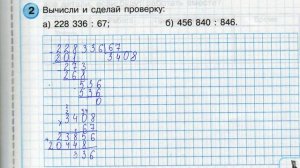 2 Вычисли и сделай проверку:
а) 228 336 : 67; б) 456 840 : 846.
228 336 67
201 3408
273
268
536
536
0
3408
× 67
+ 23856
20448
336